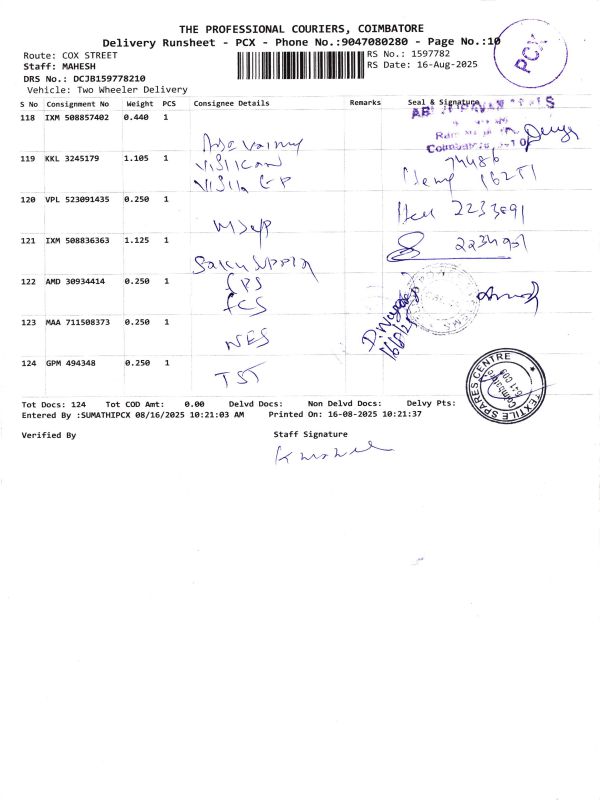 THE PROFESSIONAL COURIERS, COIMBATORE
Delivery Runsheet - PCX - Phone No.:9047080280 - Page No.:10
Route: COX STREET
RS No.: 1597782
Staff: MAHESH
RS Date: 16-Aug-2025
DRS No.: DCJB159778210
Vehicle: Two Wheeler Delivery
PCX
S No Consignment No Weight PCS Consignee Details Remarks Seal & Signature
118 IXM 508857402 0.440 1
119 KKL 3245179 1.105 1
74486
16251
120 VPL 523091435 0.250 1
2233891
121 IXM 508836363 1.125 1
122 AMD 30934414 0.250 1
FPS
FCS
123 MAA 711508373 0.250 1
NES
124 GPM 494348 0.250 1
TST
TEXTILE SPARES CENTRE
Coimbatore
641 009
Tot Docs: 124 Tot COD Amt: 0.00 Delvd Docs: Non Delvd Docs: Delvy Pts:
Entered By :SUMATHIPCX 08/16/2025 10:21:03 AM Printed On: 16-08-2025 10:21:37
Verified By Staff Signature